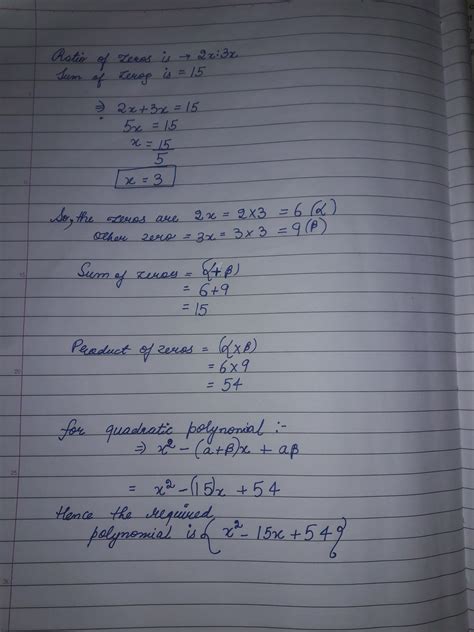 Ratio of zeros is → 2x:3x
Sum of zeros is = 15
⇒ 2x+3x = 15
5x = 15
x = 15/5
x = 3
So, the zeros are 2x = 2×3 = 6 (α)
other zero = 3x = 3×3 = 9(β)
Sum of zeros = (α+β)
= 6+9
= 15
Product of zeros = (α×β)
= 6×9
= 54
for quadratic polynomial :-
⇒ x² - (a+β)x + aβ
= x² - (15)x + 54
Hence the required
polynomial is {x² - 15x + 54}